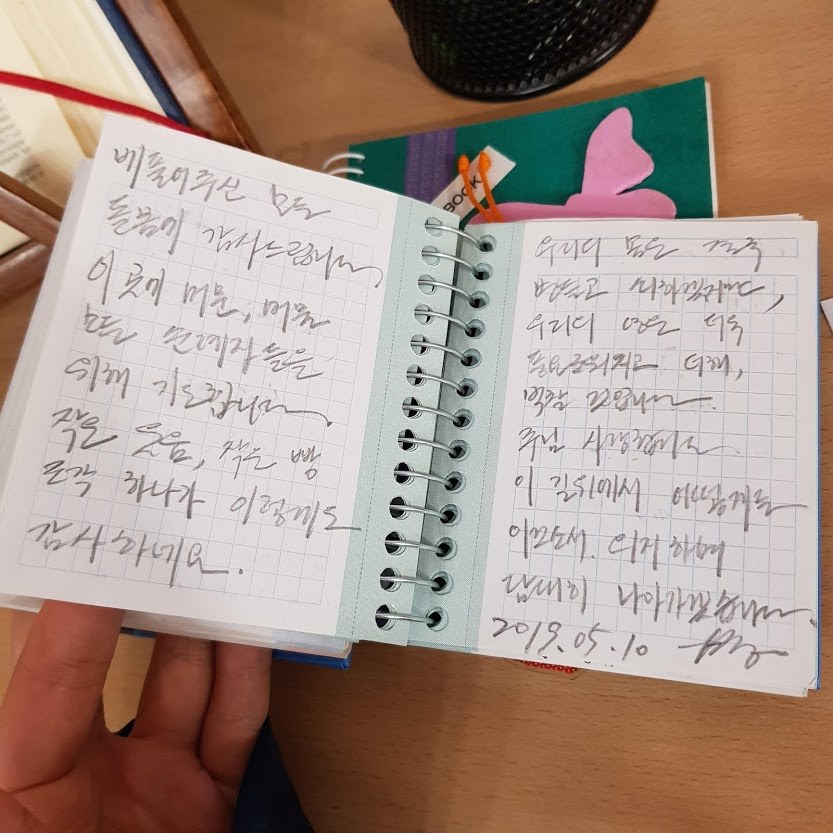 베풀어주신 모든
돌봄에 감사드립니다.
이 곳에 머문, 머물
모든 순례자들을
위해 기도합니다.
작은 웃음, 작은 빵
조각 하나가 이렇게도
감사하네요.
BOOK
우리의 몸은 점점
병들고 쇠하겠지만,
우리의 영은 더욱
풍요로워지고 더해,
주님 사랑합니다.
이 길위에서 어떻게든
이끄소서. 의지하며
담대히 나아가겠습니다.
2019.05.10